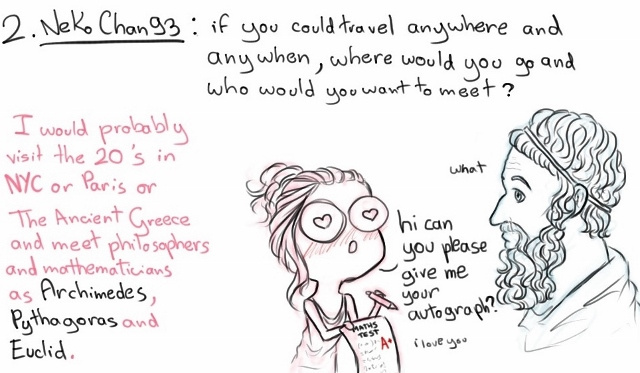 2. Neko Chan93 : if you could travel anywhere and
anywhen, where would you go and
who would you want to meet?
I would probably
visit the 20's in
NYC or Paris or
The Ancient Greece
and meet philosophers
and mathematicians
as Archimedes,
Pythagoras and
Euclid.
what
hi can
you please
give me
your
autograph?
i love you
MATHS
TEST
A+